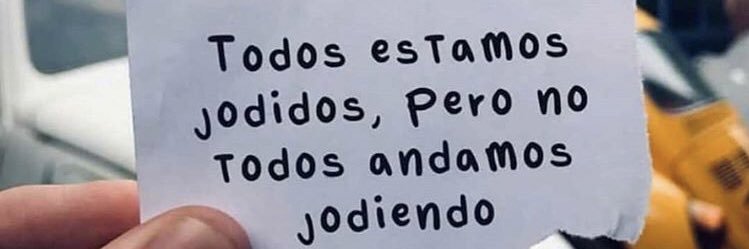 Todos estamos
jodidos, pero no
todos andamos
jodiendo